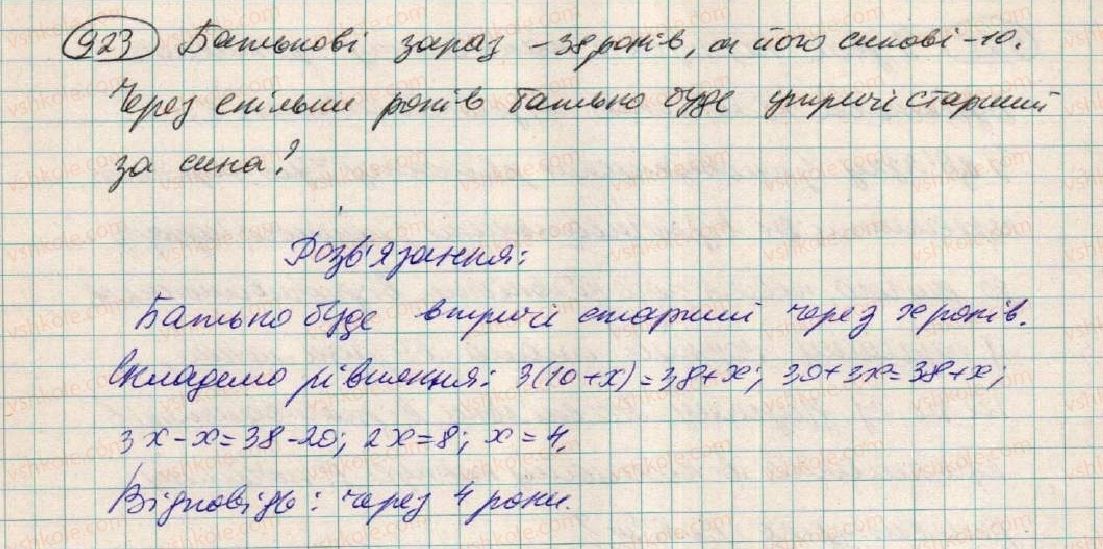 923 Батькові зараз - 38 років, а його синові - 10.
Через скільки років батько буде утричі старший
за сина?
Розв'язання:
Батько буде втричі старший через х років.
Складемо рівняння: 3(10+х)=38+х; 30+3х=38+х;
3х-х=38-20; 2х=8; х=4.
Відповідь: через 4 роки.